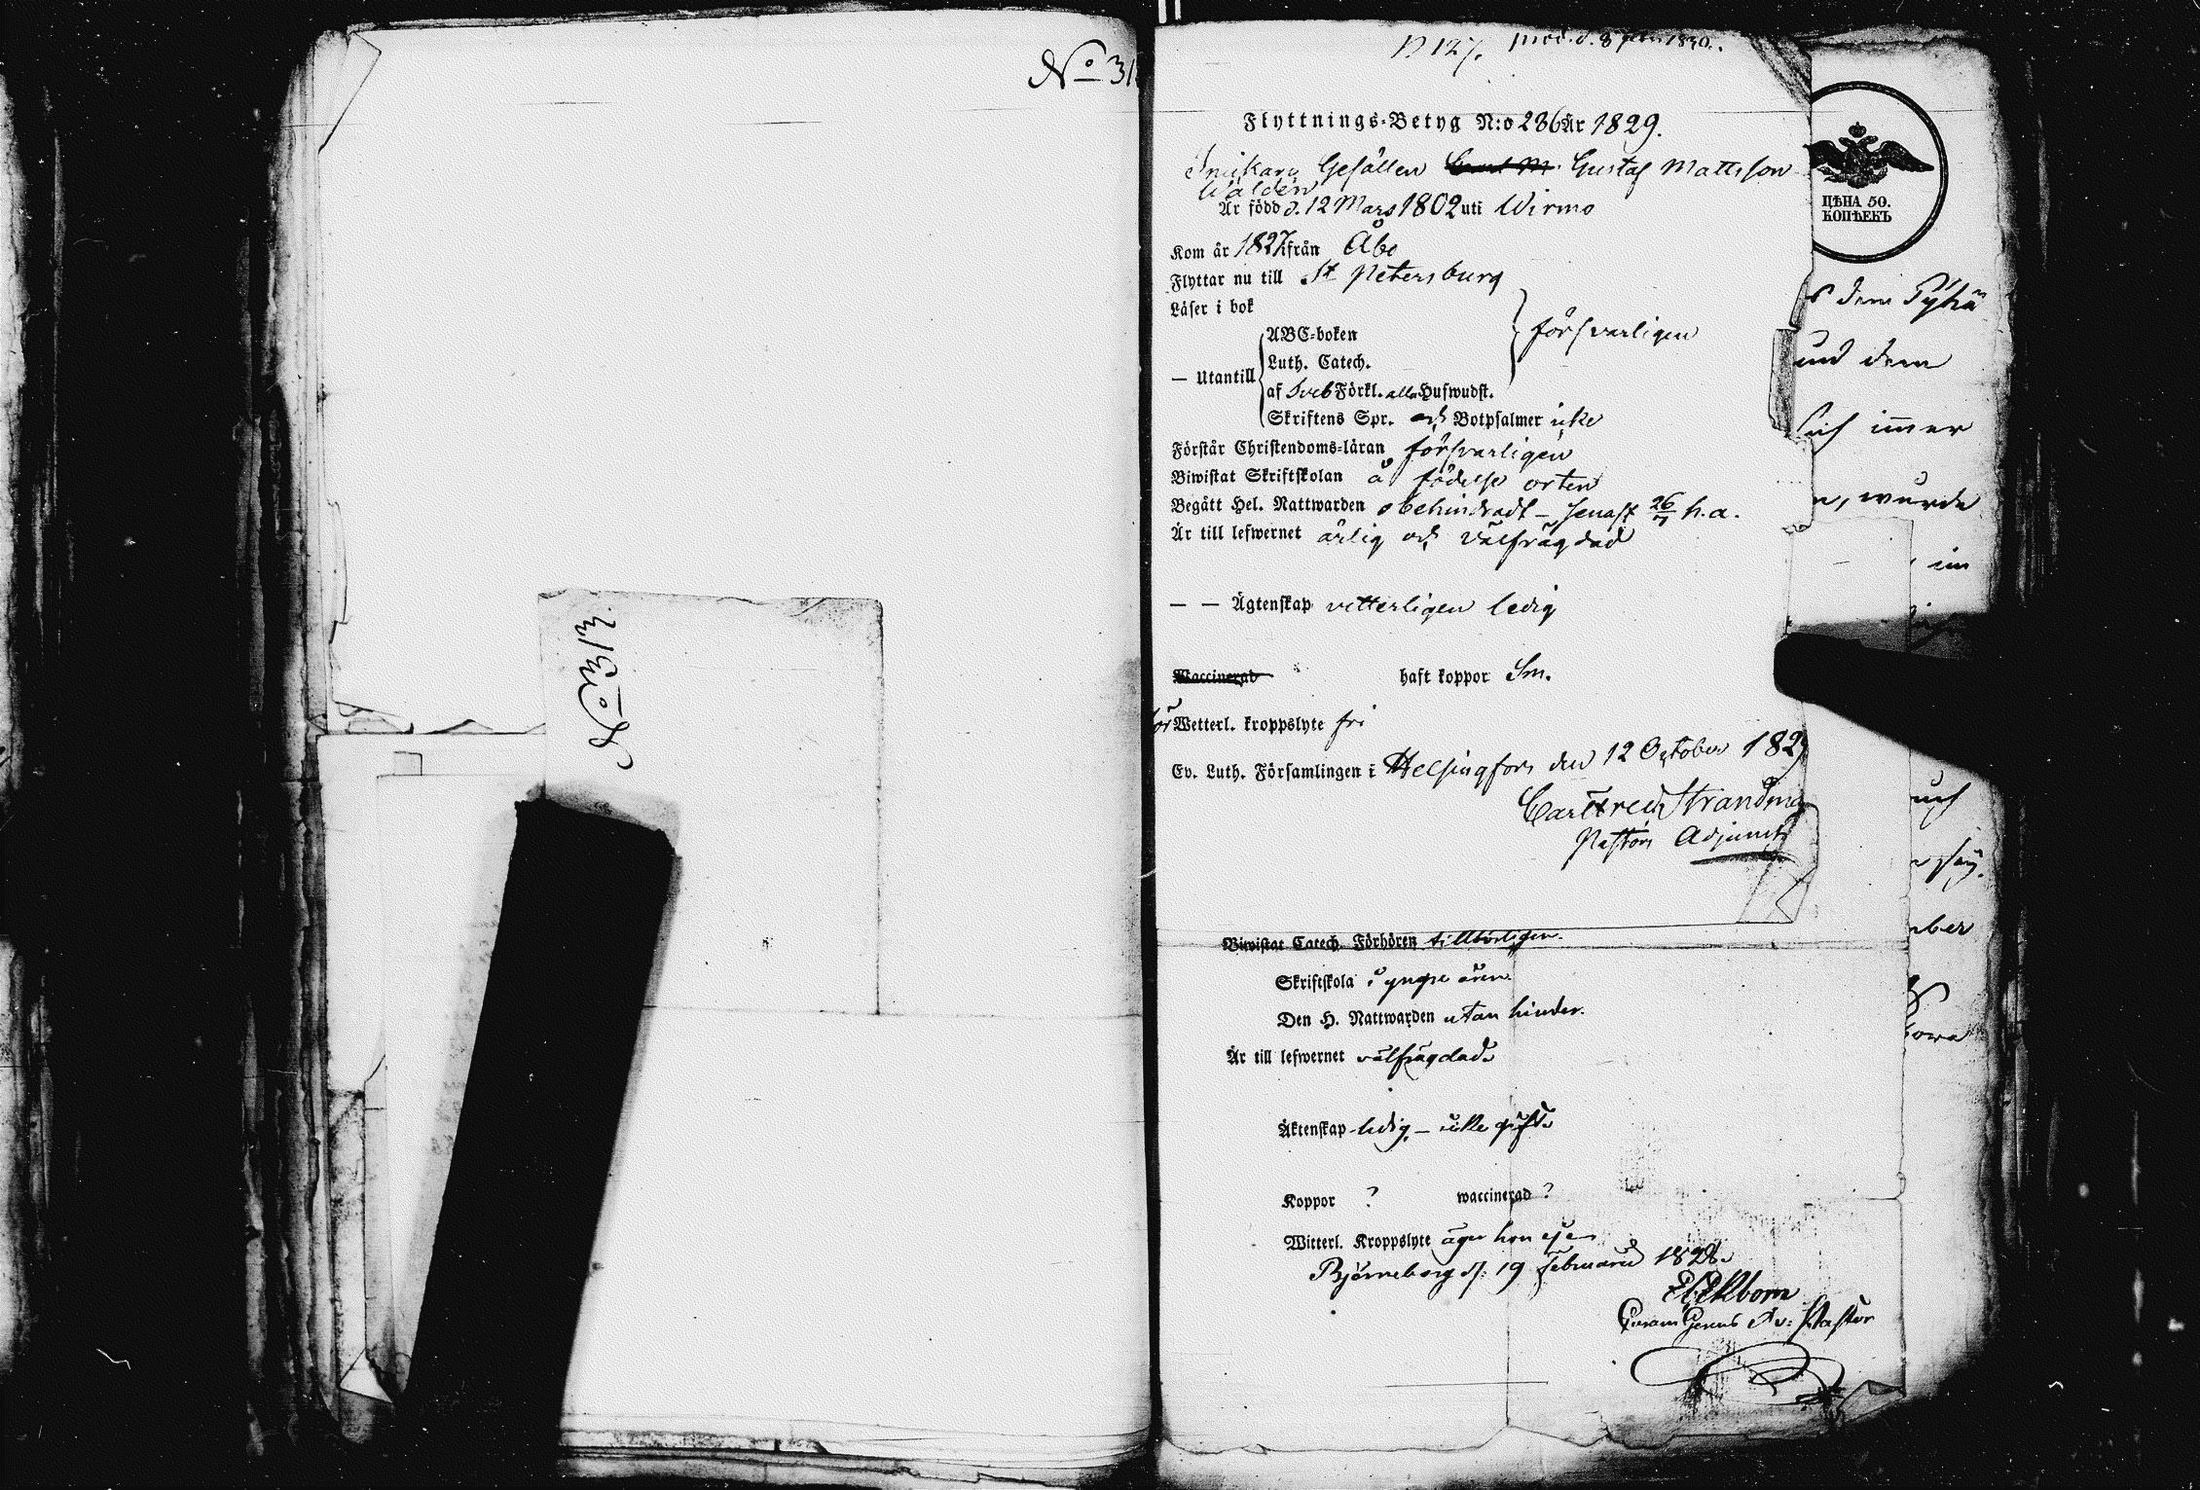 No 31
No 313
N 127.
Flyttnings-Betyg N:o 236 År 1829.
Snickare Gesällen Gustaf Mattsson
Waldén
Är född d. 12 Mars 1802 uti Wirmo
Kom år 1827 från Åbo
Flyttar nu till St Petersburg
Läser i bok
ABC-boken
försvarligen
Luth. Catech.
— Utantill
af Sveb Förkl. alla Huswudst.
Skriftens Spr. och Botpsalmer icke
Förstår Christendoms-läran försvarligen
Biwistat Skriftskolan å födelse orten
Begått Hel. Nattwarden obehindradt – senast 26/7 h.a.
Är till lefwernet ärlig och välfrägdad
— — Ägtenskap vetterligen ledig
Waccinerad haft koppor Sm.
för Wetterl. kroppslyte fri
Ev. Luth. Församlingen i Helsingfors den 12 October 1829
Carl Fredr Strandm
Pastors Adjunct
Biwistat Catech. Förhören tillbörligen.
Skriftskola i yngre åren
Den H. Nattwarden utan hinder.
Är till lefwernet välfrägdad.
Äktenskap ledig, – icke gift.
Koppor ? waccinerad ?
Witterl. Kroppslyte äger hon ej
Björneborg d. 19 Februarii 1828.
Ekbom
v: Pastor
ЦѢНА 50.
КОПѢЕКЪ
dem
und dem
sich immer
n, wurde
im
ber